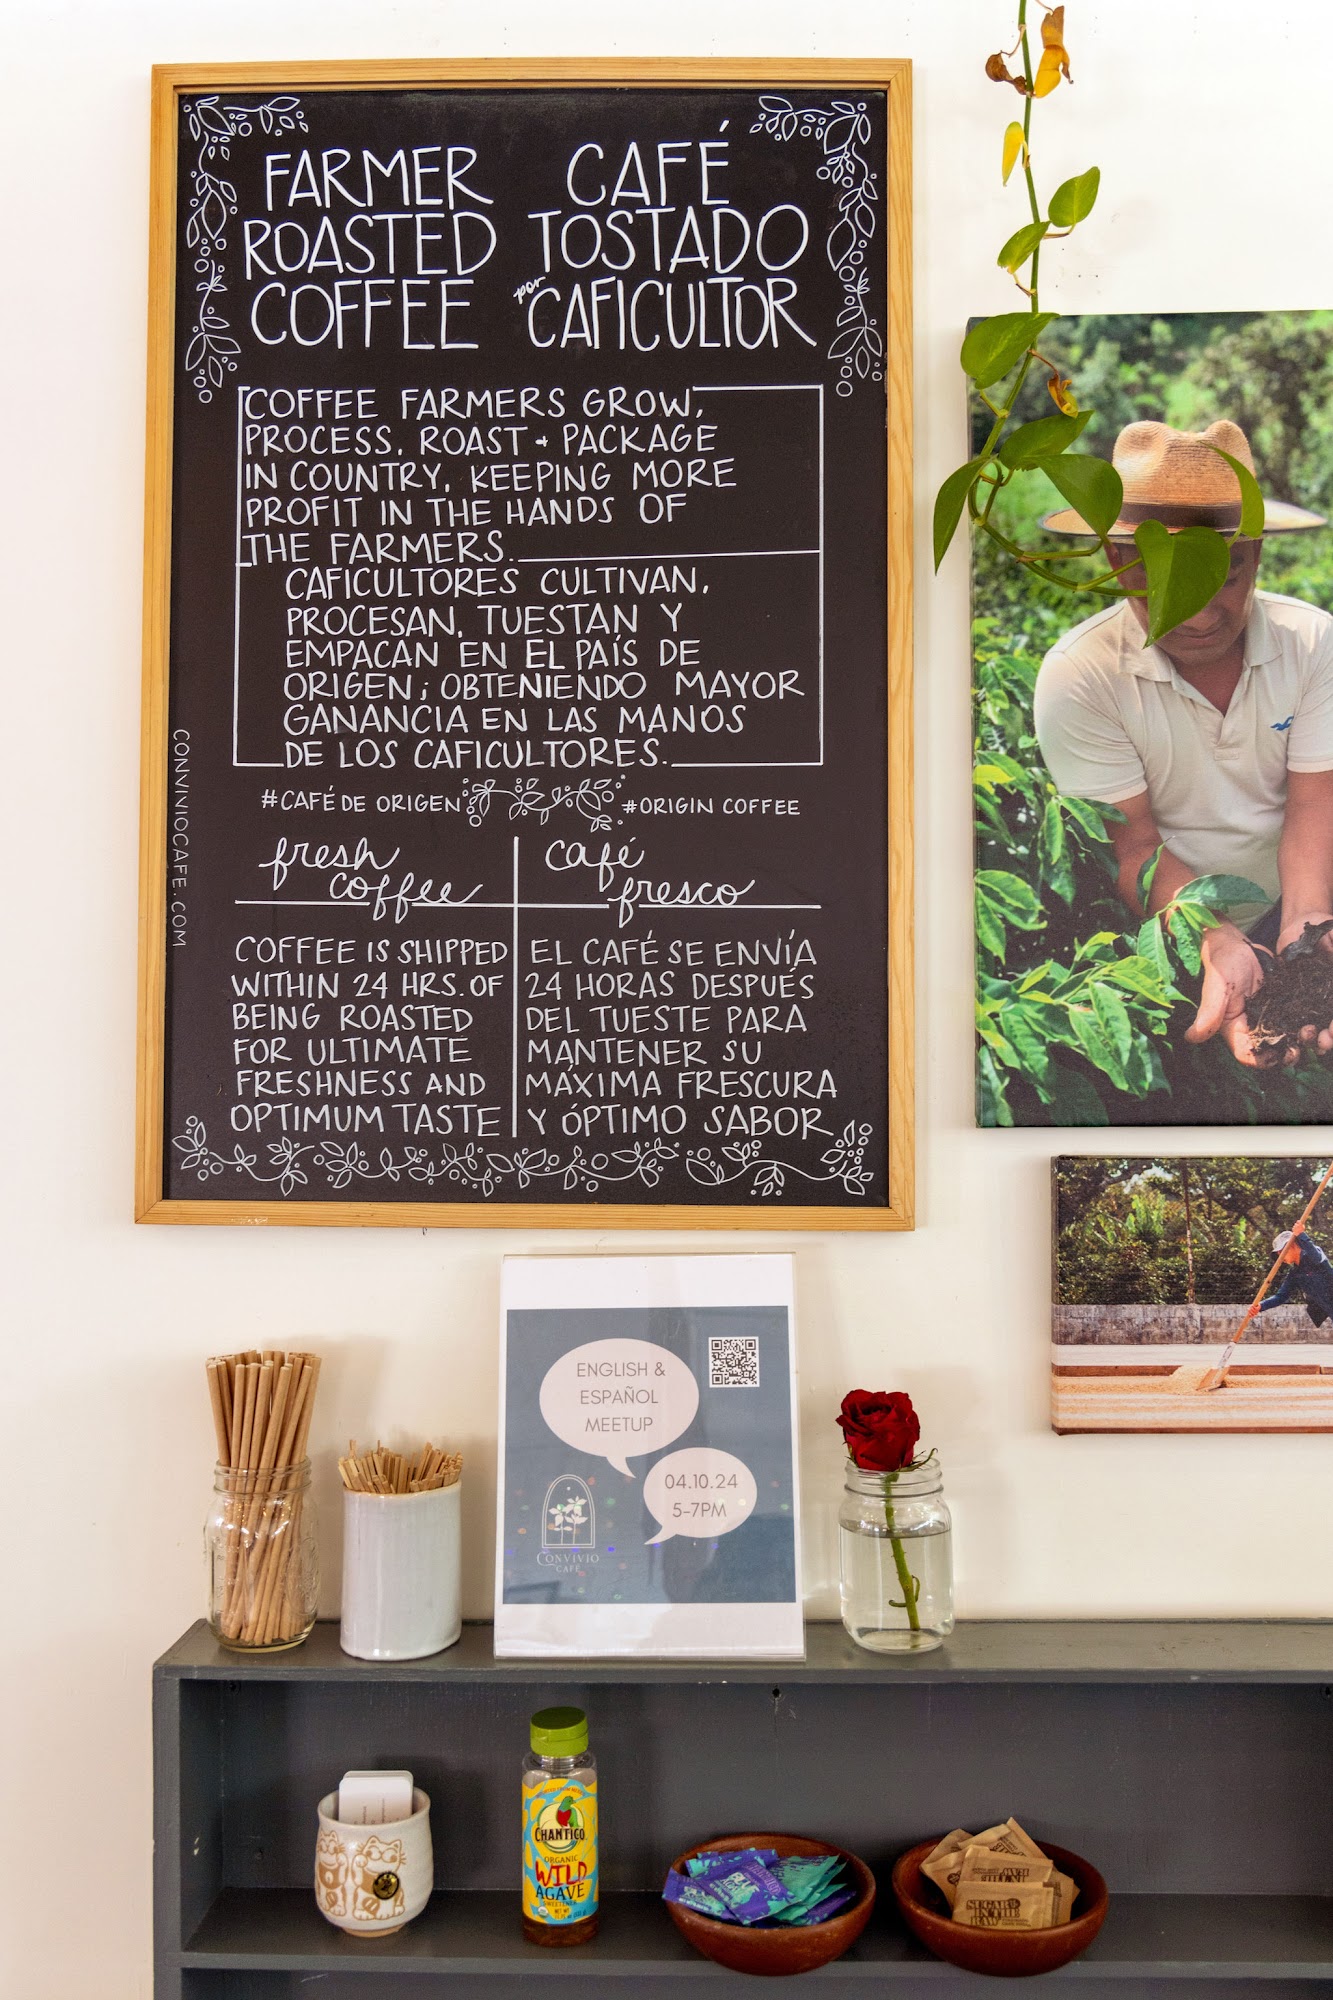 FARMER
ROASTED
COFFEE
CAFÉ
TOSTADO
por CAFICULTOR
COFFEE FARMERS GROW,
PROCESS, ROAST + PACKAGE
IN COUNTRY, KEEPING MORE
PROFIT IN THE HANDS OF
THE FARMERS.
CAFICULTORES CULTIVAN,
PROCESAN, TUESTAN Y
EMPACAN EN EL PAÍS DE
ORIGEN; OBTENIENDO MAYOR
GANANCIA EN LAS MANOS
DE LOS CAFICULTORES.
#CAFÉ DE ORIGEN
#ORIGIN COFFEE
CONVIVIOCAFE.COM
fresh
coffee
COFFEE IS SHIPPED
WITHIN 24 HRS. OF
BEING ROASTED
FOR ULTIMATE
FRESHNESS AND
OPTIMUM TASTE
café
fresco
EL CAFÉ SE ENVÍA
24 HORAS DESPUÉS
DEL TUESTE PARA
MANTENER SU
MÁXIMA FRESCURA
Y ÓPTIMO SABOR
ENGLISH &
ESPAÑOL
MEETUP
04.10.24
5-7PM
CONVIVIO
CAFÉ
CHANTICO
ORGANIC
WILD
AGAVE
SWEETENER
SUGAR
IN THE
RAW